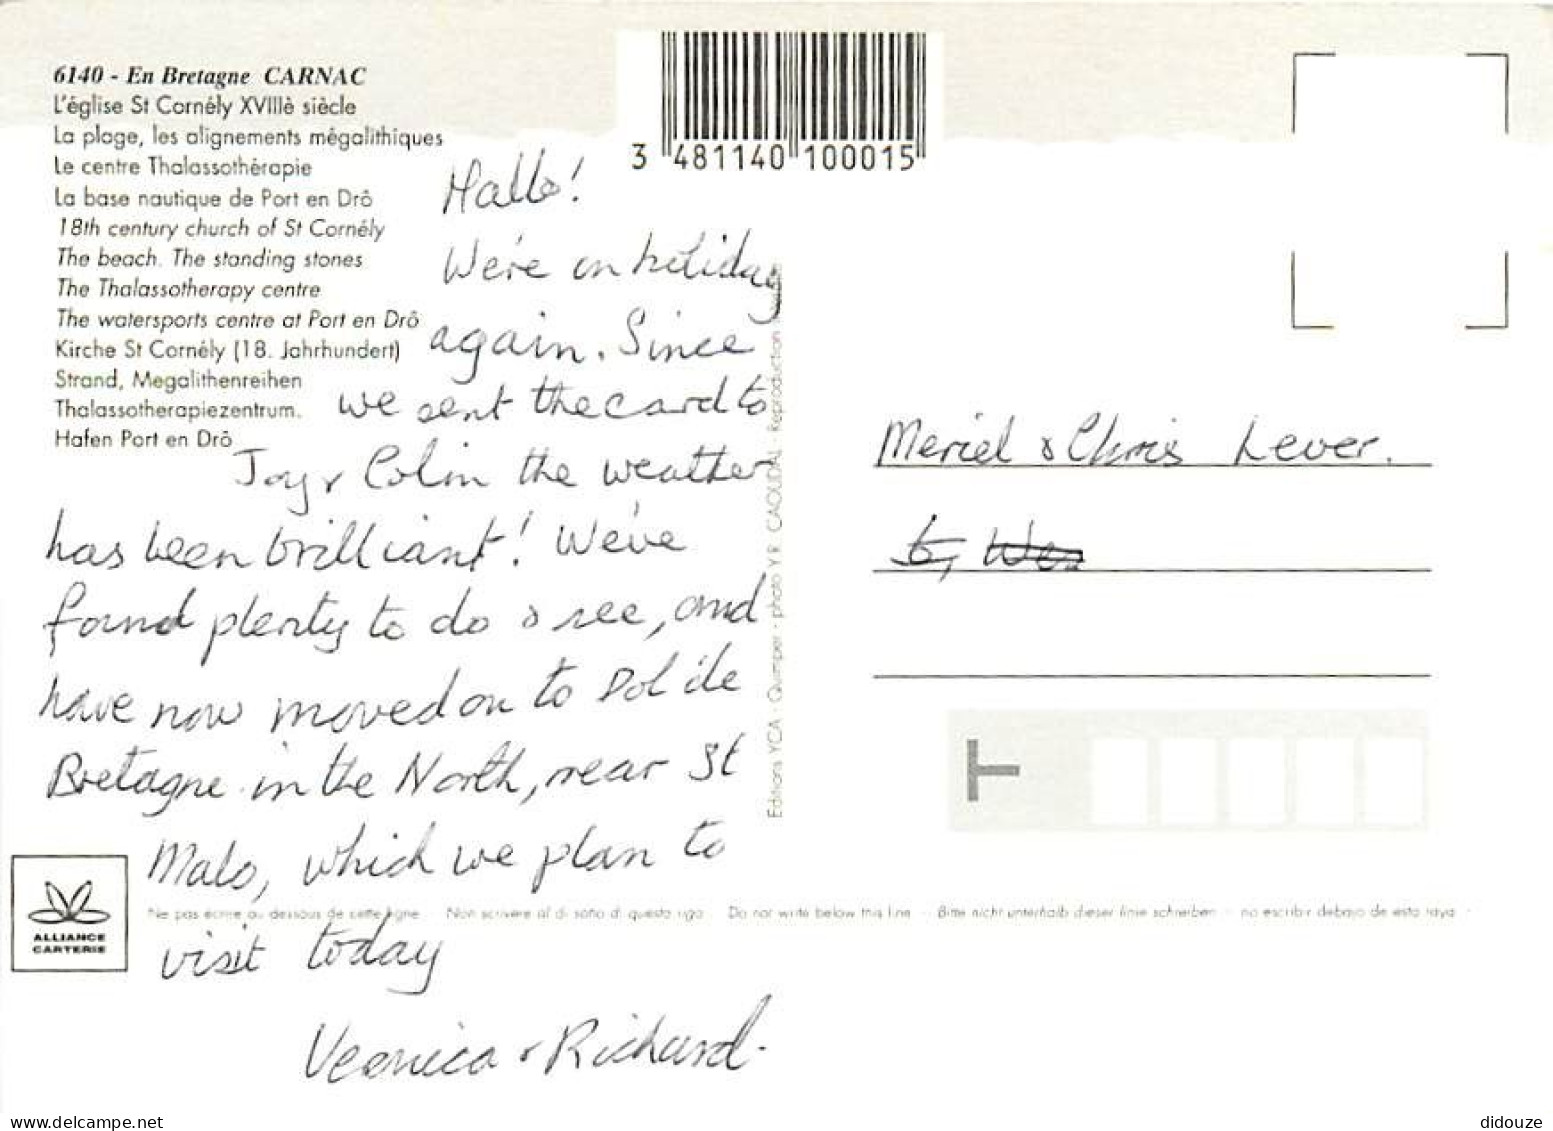 6140 - En Bretagne CARNAC
L'église St Cornély XVIIIè siècle
La plage, les alignements mégalithiques
Le centre Thalassothérapie
La base nautique de Port en Drô
18th century church of St Cornély
The beach. The standing stones
The Thalassotherapy centre
The watersports centre at Port en Drô
Kirche St Cornély (18. Jahrhundert)
Strand, Megalithenreihen
Thalassotherapiezentrum.
Hafen Port en Drô
3 481140 100015
Hallo!
We're on holiday
again. Since
we sent the card to
Joy & Colin the weather
has been brilliant! We've
found plenty to do & see, and
have now moved on to Dol de
Bretagne in the North, near St
Malo, which we plan to
visit today
Veronica & Richard.
Editions YCA - Quimper - photo Y.R. CAOUDAL - Reproduction
Meriel & Chris Lever.
6, We
T
ALLIANCE
CARTERIE
Ne pas écrire au dessous de cette ligne - Non scrivere al di sotto di questa riga - Do not write below this line - Bitte nicht unterhalb dieser linie schreiben - no escribir debajo de esta raya -
delcampe.net
didouze